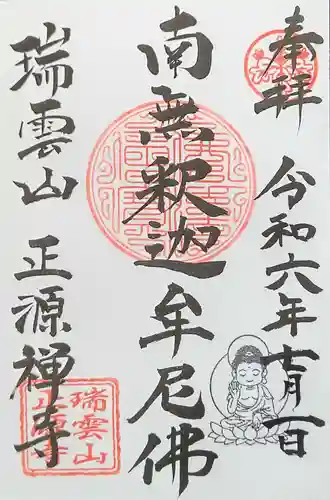 奉拜
令和六年十一月一日
南無釈迦牟尼佛
瑞雲山 正源禅寺
瑞雲山
正源寺